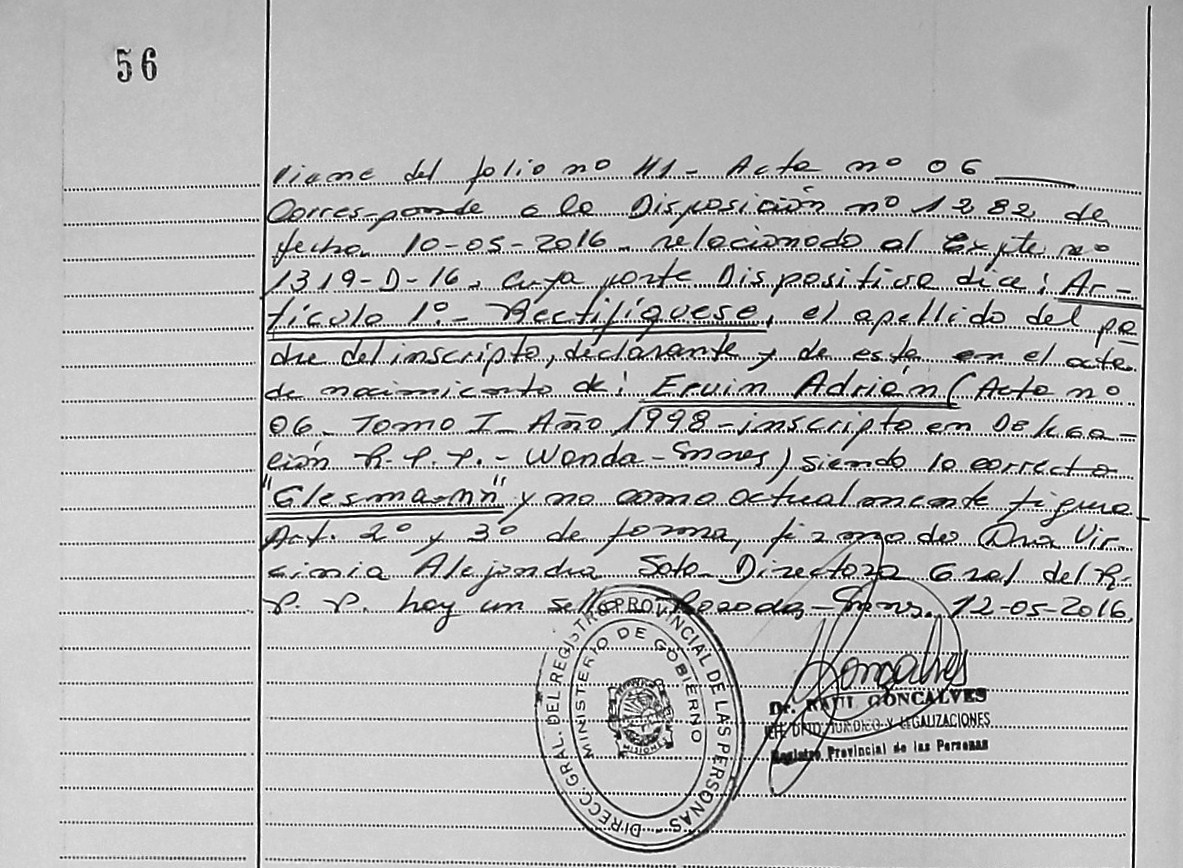 56
Viene del folio nº 41- Acta nº 06
Corresponde a la Disposición nº 1282 de
fecha 10-05-2016 - relacionado al Expte nº
1319-D-16, cuya parte Dispositiva dice: Ar-
tículo 1º.- Rectifíquese, el apellido del pa
dre del inscripto, declarante y de este en el acta
de nacimiento de: Ervin Adrián (Acta nº
06 - Tomo I - Año 1998 - inscripto en Delega-
ción R.P.P. - Wanda - Mnes) siendo lo correcto
"Glesmann" y no como actualmente figura
Art. 2º y 3º de forma, firmado: Dra Vir-
ginia Alejandra Soto - Directora Gral del R.
P. P. hay un sello Posadas - Mnes. 12-05-2016.
DIRECC. GRAL. DEL REGISTRO PROVINCIAL DE LAS PERSONAS
MINISTERIO DE GOBIERNO
MISIONES
Goncalves
Dr. RAUL GONCALVES
JURIDICO Y LEGALIZACIONES
Registro Provincial de las Personas